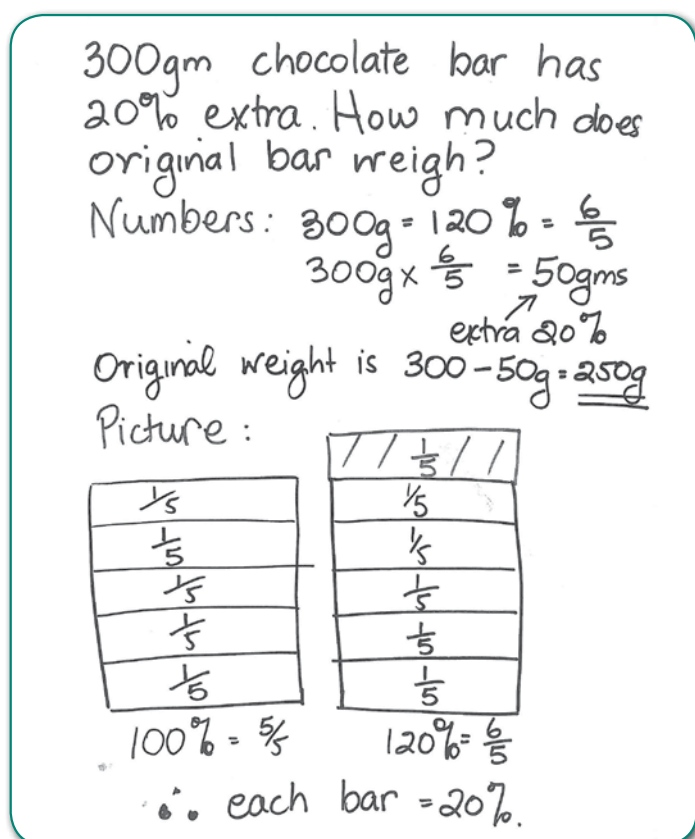 300gm chocolate bar has
20% extra. How much does
original bar weigh?
Numbers: 300g = 120% = 6/5
300g × 6/5 = 50gms
extra 20%
Original weight is 300 - 50g = 250g
Picture:
1/5
1/5
1/5
1/5
1/5
100% = 5/5
1/5
1/5
1/5
1/5
1/5
1/5
120% = 6/5
∴ each bar = 20%.